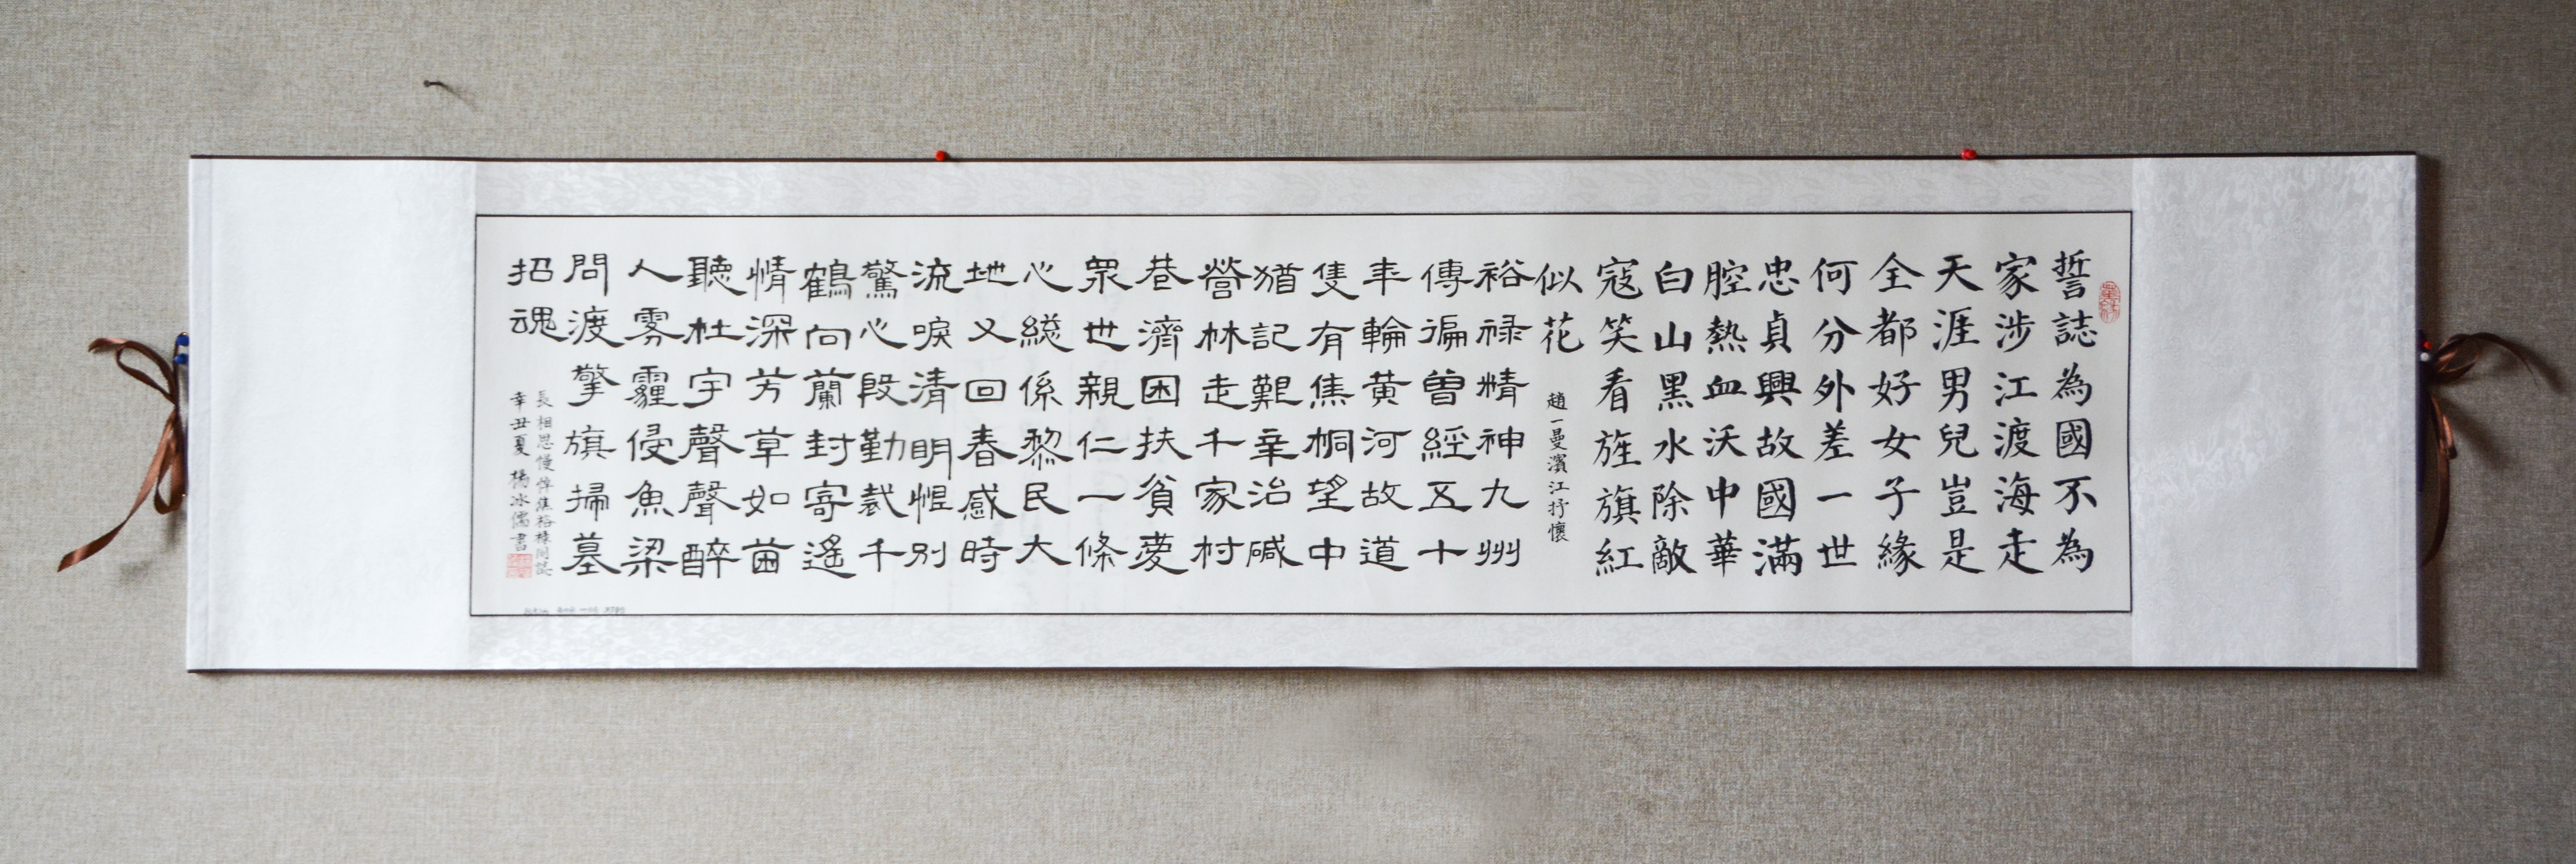 誓誌為國不為
家涉江渡海走
天涯男兒豈是
全都好女子緣
何分外差一世
忠貞興故國滿
腔熱血沃中華
白山黑水除敵
寇笑看旌旗紅
似花
趙一曼濱江抒懷
裕禄精神九州
傳徧曾經五十
年輪黃河故道
隻有焦桐望中
猶記艱辛治碱
營林走千家村
巷濟困扶貧愛
衆世親仁一條
心縂係黎民大
地又回春感時
流唳清明惺别
驚心段勤裁千
鶴向蘭封寄遙
情深芳草如茵
聽杜宇聲聲醉
人雾霾侵魚梁
問渡擎旗掃墓
招魂
長相思慢悼焦裕禄同誌
辛丑夏 楊冰儒書